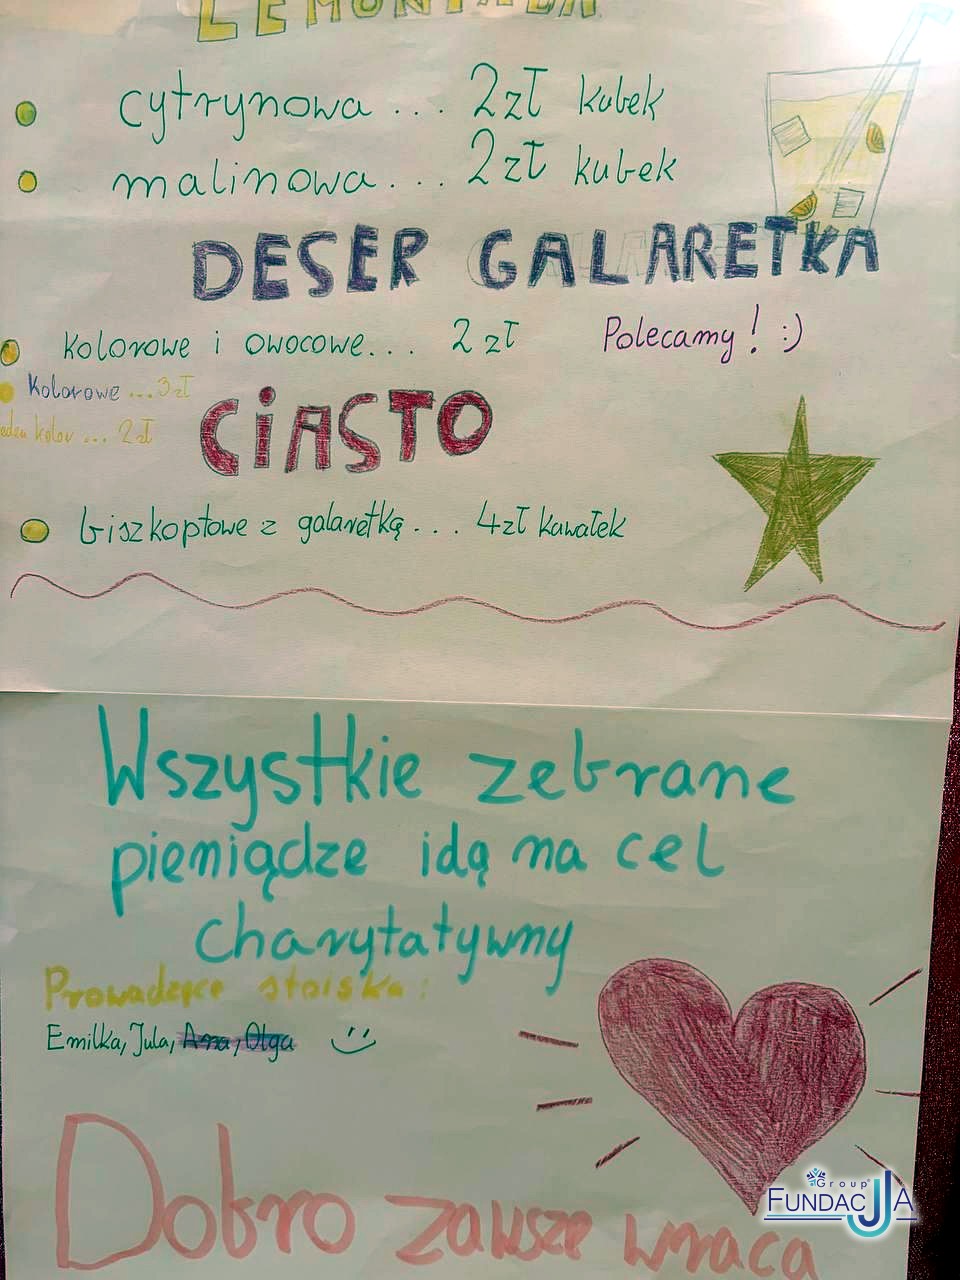 LEMONIADA
cytrynowa ... 2zł kubek
malinowa ... 2zł kubek
DESER GALARETKA
kolorowe i owocowe... 2 zł Polecamy! :)
Kolorowe ... 3zł
jeden kolor ... 2zł
CIASTO
biszkoptowe z galaretką ... 4zł kawałek
Wszystkie zebrane
pieniądze idą na cel
charytatywny
Prowadzące stoiska:
Emilka, Jula, Ana, Olga
Dobro zawsze wraca
Group
FUNDACJJA